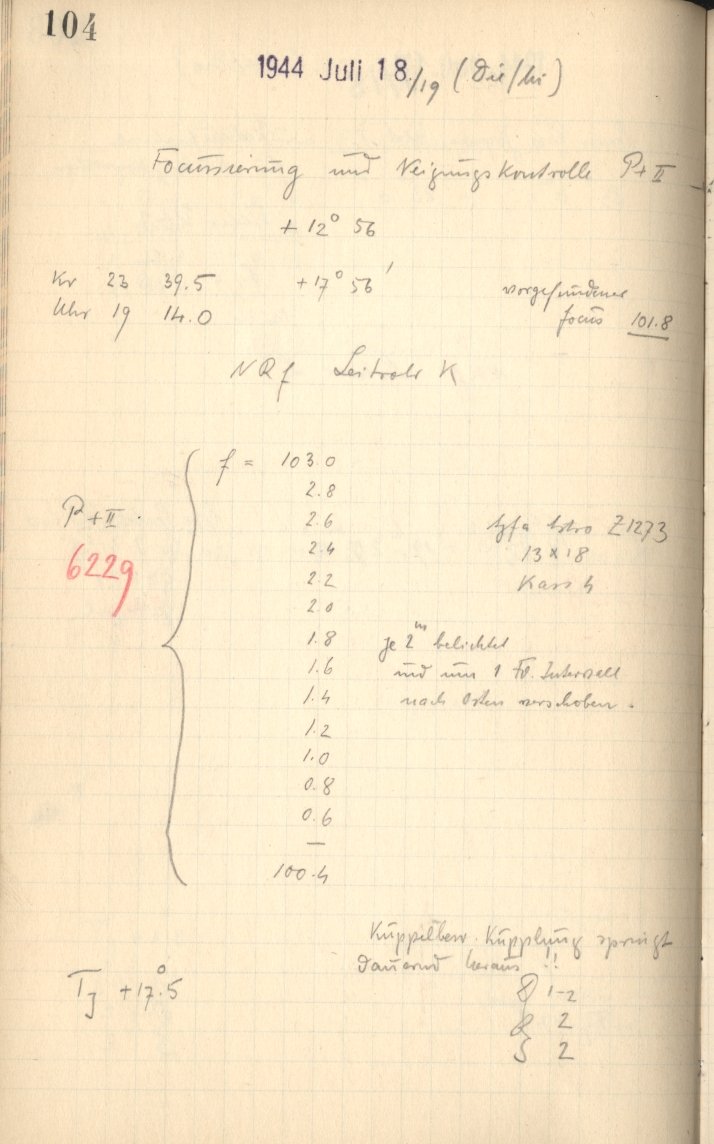 104
1944 Juli 18./19 (Die/Mi)
Focussierung und Neigungskontrolle P+II
+12° 56
Kr 23 39.5 +17° 56'
Uhr 19 14.0
vorgefundener
focus 101.8
NRf Leitrohr K
f = 103.0
2.8
P+II.
2.6
Agfa Astro Z1273
2.4
13×18
6229
2.2
Kass 4
2.0
1.8 je 2ᵐ belichtet
1.6 und um 1 Fd. Intervall
1.4 nach Osten verschoben.
1.2
1.0
0.8
0.6
—
100.4
Kuppelbew. Kupplung springt
dauernd heraus !!
TJ +17.5°
1-2
2
S 2